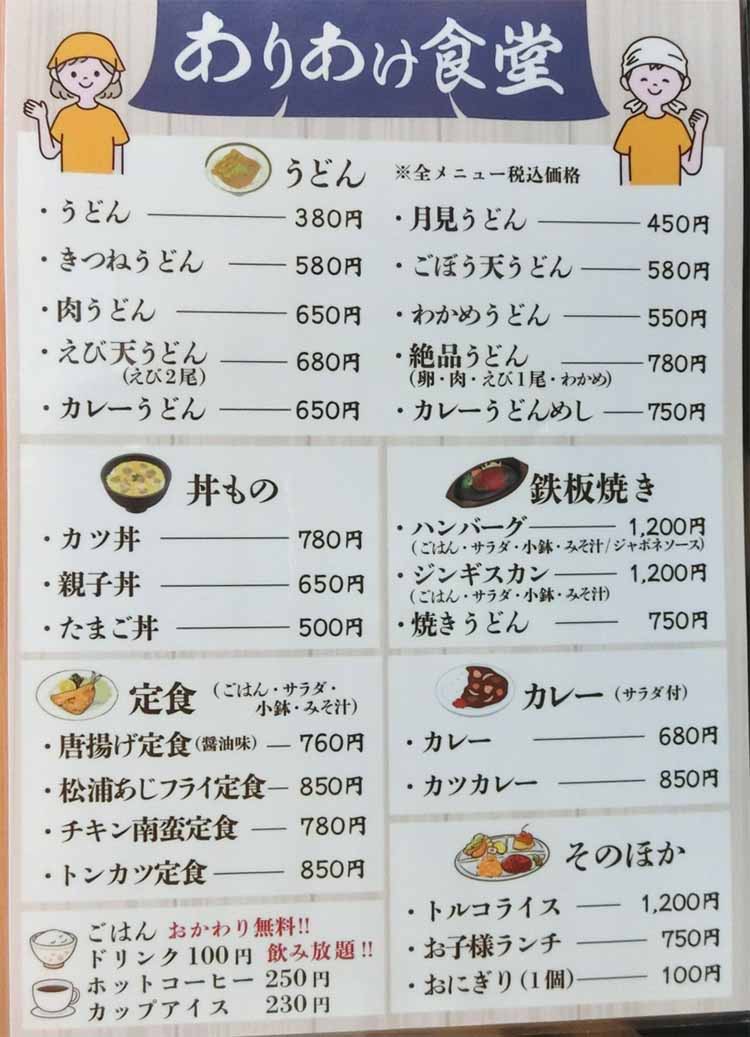 ありあけ食堂
うどん ※全メニュー税込価格
・うどん 380円
・きつねうどん 580円
・肉うどん 650円
・えび天うどん 680円
(えび2尾)
・カレーうどん 650円
・月見うどん 450円
・ごぼう天うどん 580円
・わかめうどん 550円
・絶品うどん 780円
(卵・肉・えび1尾・わかめ)
・カレーうどんめし 750円
丼もの
・カツ丼 780円
・親子丼 650円
・たまご丼 500円
鉄板焼き
・ハンバーグ 1,200円
(ごはん・サラダ・小鉢・みそ汁/ジャポネソース)
・ジンギスカン 1,200円
(ごはん・サラダ・小鉢・みそ汁)
・焼きうどん 750円
定食 (ごはん・サラダ・
小鉢・みそ汁)
・唐揚げ定食(醤油味) 760円
・松浦あじフライ定食 850円
・チキン南蛮定食 780円
・トンカツ定食 850円
カレー (サラダ付)
・カレー 680円
・カツカレー 850円
そのほか
・トルコライス 1,200円
・お子様ランチ 750円
・おにぎり(1個) 100円
ごはん おかわり無料!!
ドリンク100円 飲み放題!!
ホットコーヒー 250円
カップアイス 230円